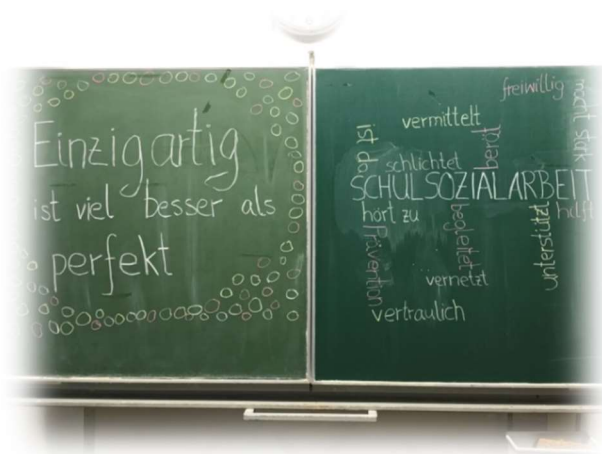 Einzigartig
ist viel besser als
perfekt
freiwillig
macht stark
vermittelt
ist da
berät
schlichtet
SCHULSOZIALARBEIT
hört zu
hilft
begleitet
unterstützt
Prävention
vernetzt
vertraulich